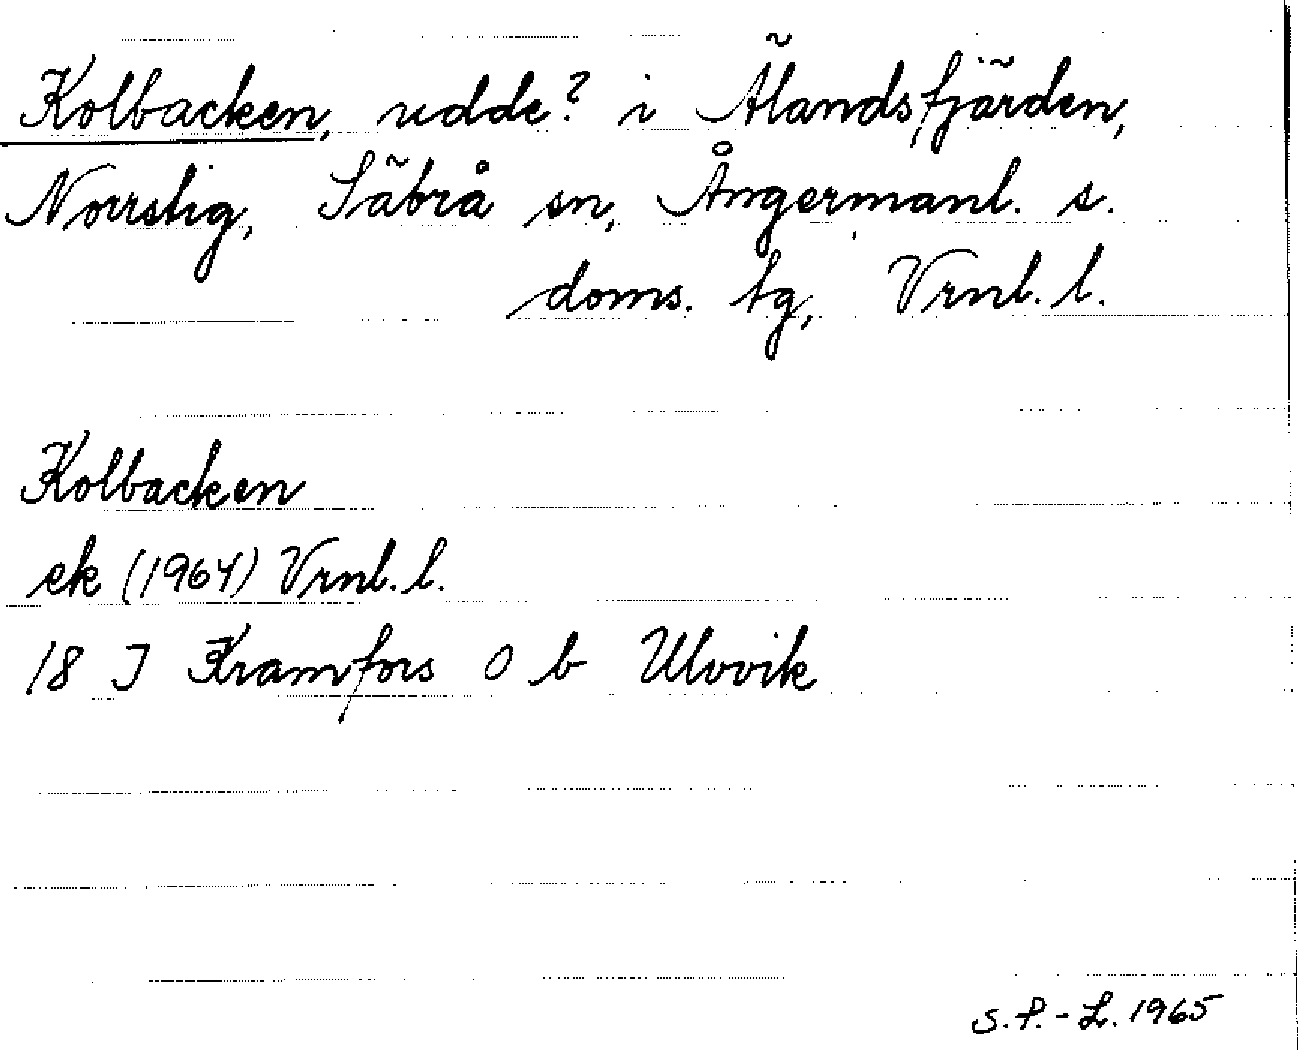 Kolbacken, udde? i Älandsfjärden,
Norrstig, Säbrå sn, Ångermanl. s.
doms. tg, Vrnl. l.
Kolbacken
ek (1964) Vrnl. l.
18 I Kramfors O b Ulvvik
S.P.-L. 1965